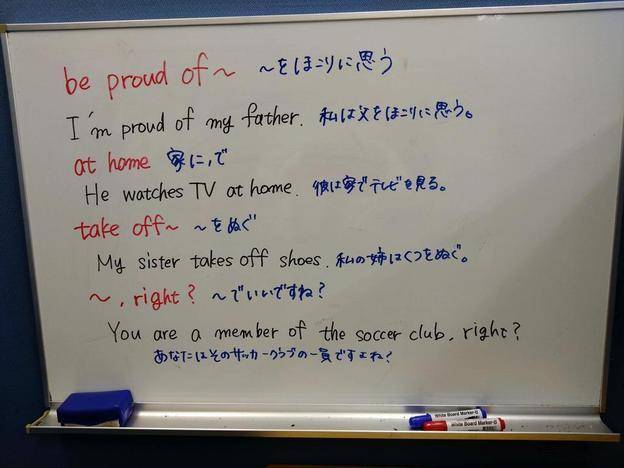 be proud of～ ～をほこりに思う
I'm proud of my father. 私は父をほこりに思う。
at home 家に,で
He watches TV at home. 彼は家でテレビを見る。
take off～ ～をぬぐ
My sister takes off shoes. 私の姉はくつをぬぐ。
～, right? ～でいいですね?
You are a member of the soccer club, right?
あなたはそのサッカークラブの一員ですよね?
White Board Marker-G
White Board Marker-G